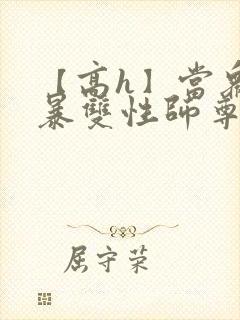 【高h】當
暴雙性師尊
屈守荣